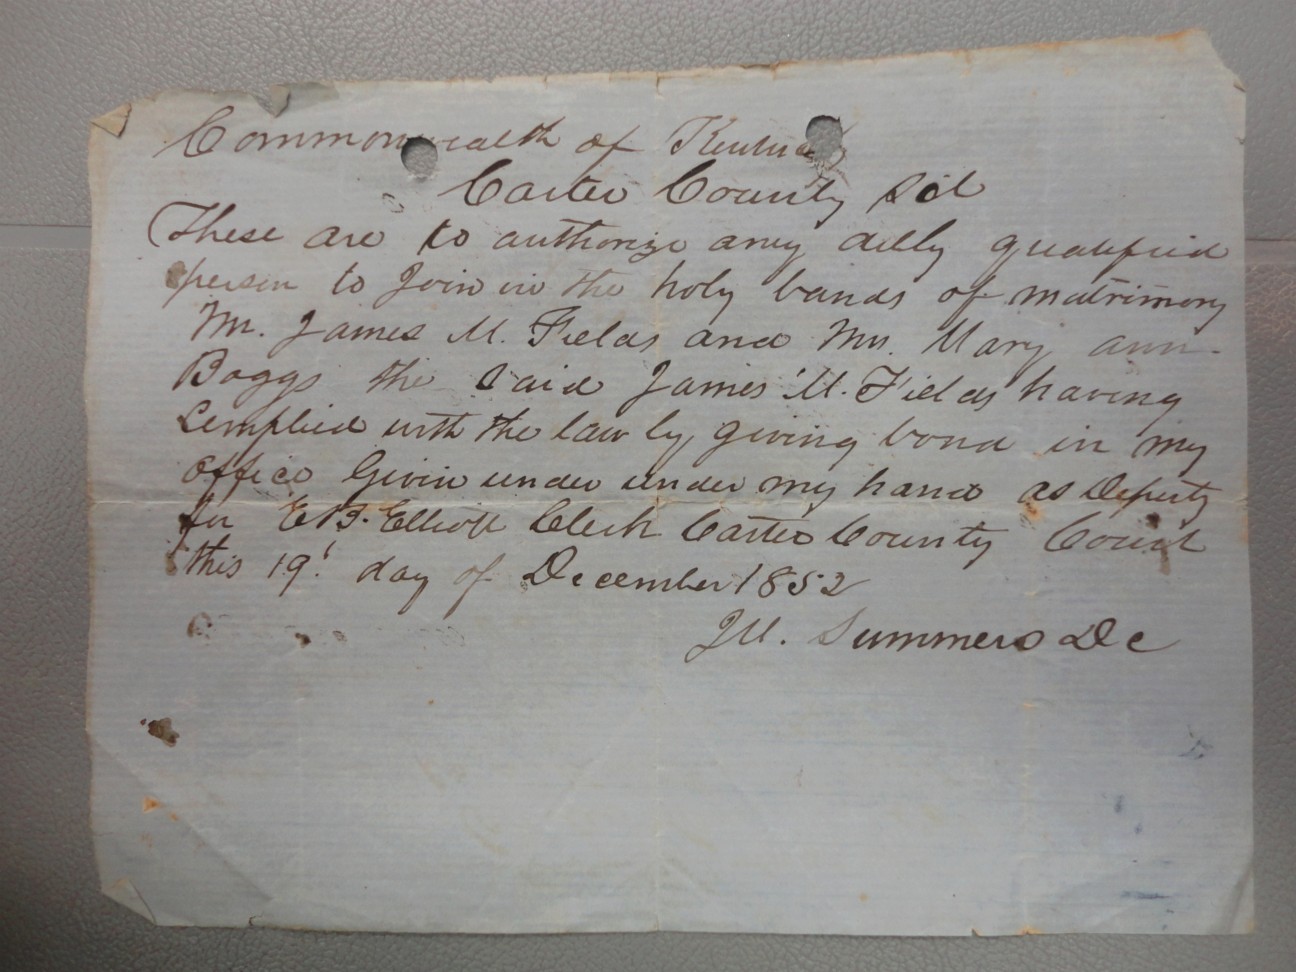 Commonwealth of Kentucky
Carter County Sct
These are to authorize any dully qualified
person to Join in the holy bands of matrimony
Mr. James M. Fields and Mrs. Mary ann
Boggs the said James M. Fields having
Complied with the law by giving bond in my
office Givin under under my hand as Deputy
for E B. Elliott Clerk Carter County Court
this 19' day of December 1852
J M. Summers Dc